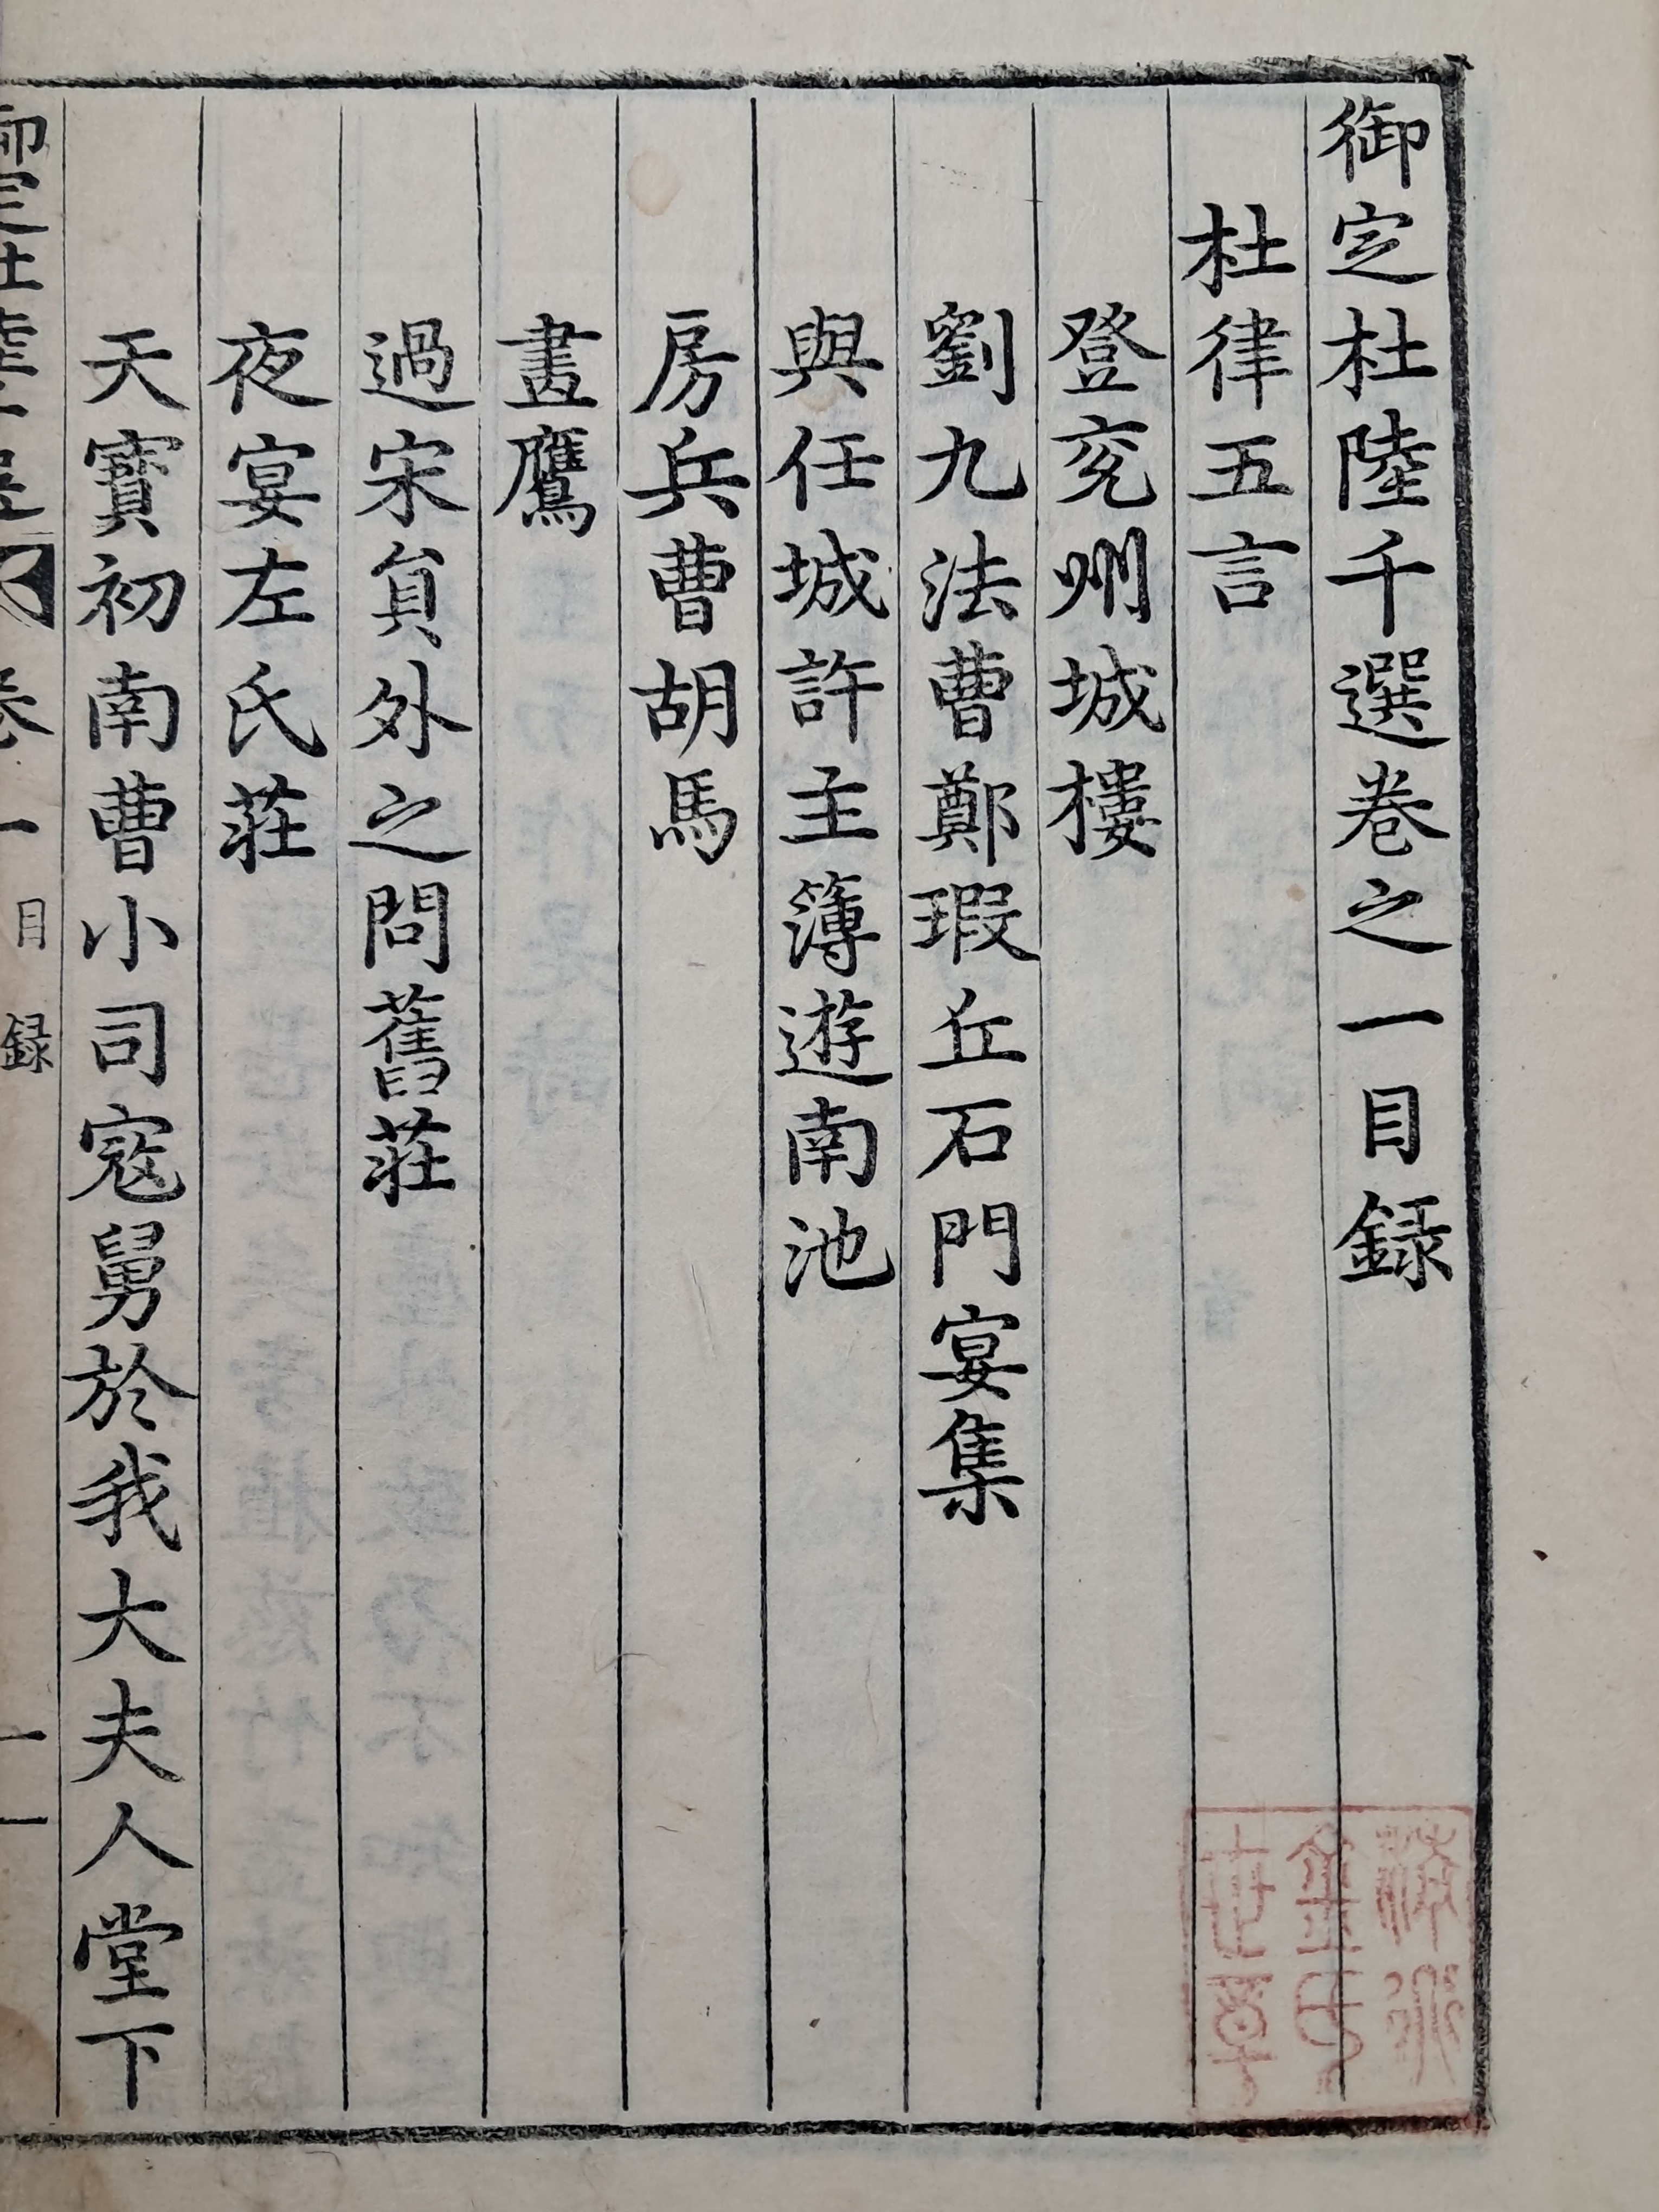 御定杜陸千選卷之一目録
杜律五言
登兖州城樓
劉九法曹鄭瑕丘石門宴集
與任城許主簿遊南池
房兵曹胡馬
畫鷹
過宋貟外之問舊莊
夜宴左氏莊
天寶初南曹小司寇舅於我大夫人堂下
御定杜陸千選 卷一 目録 一